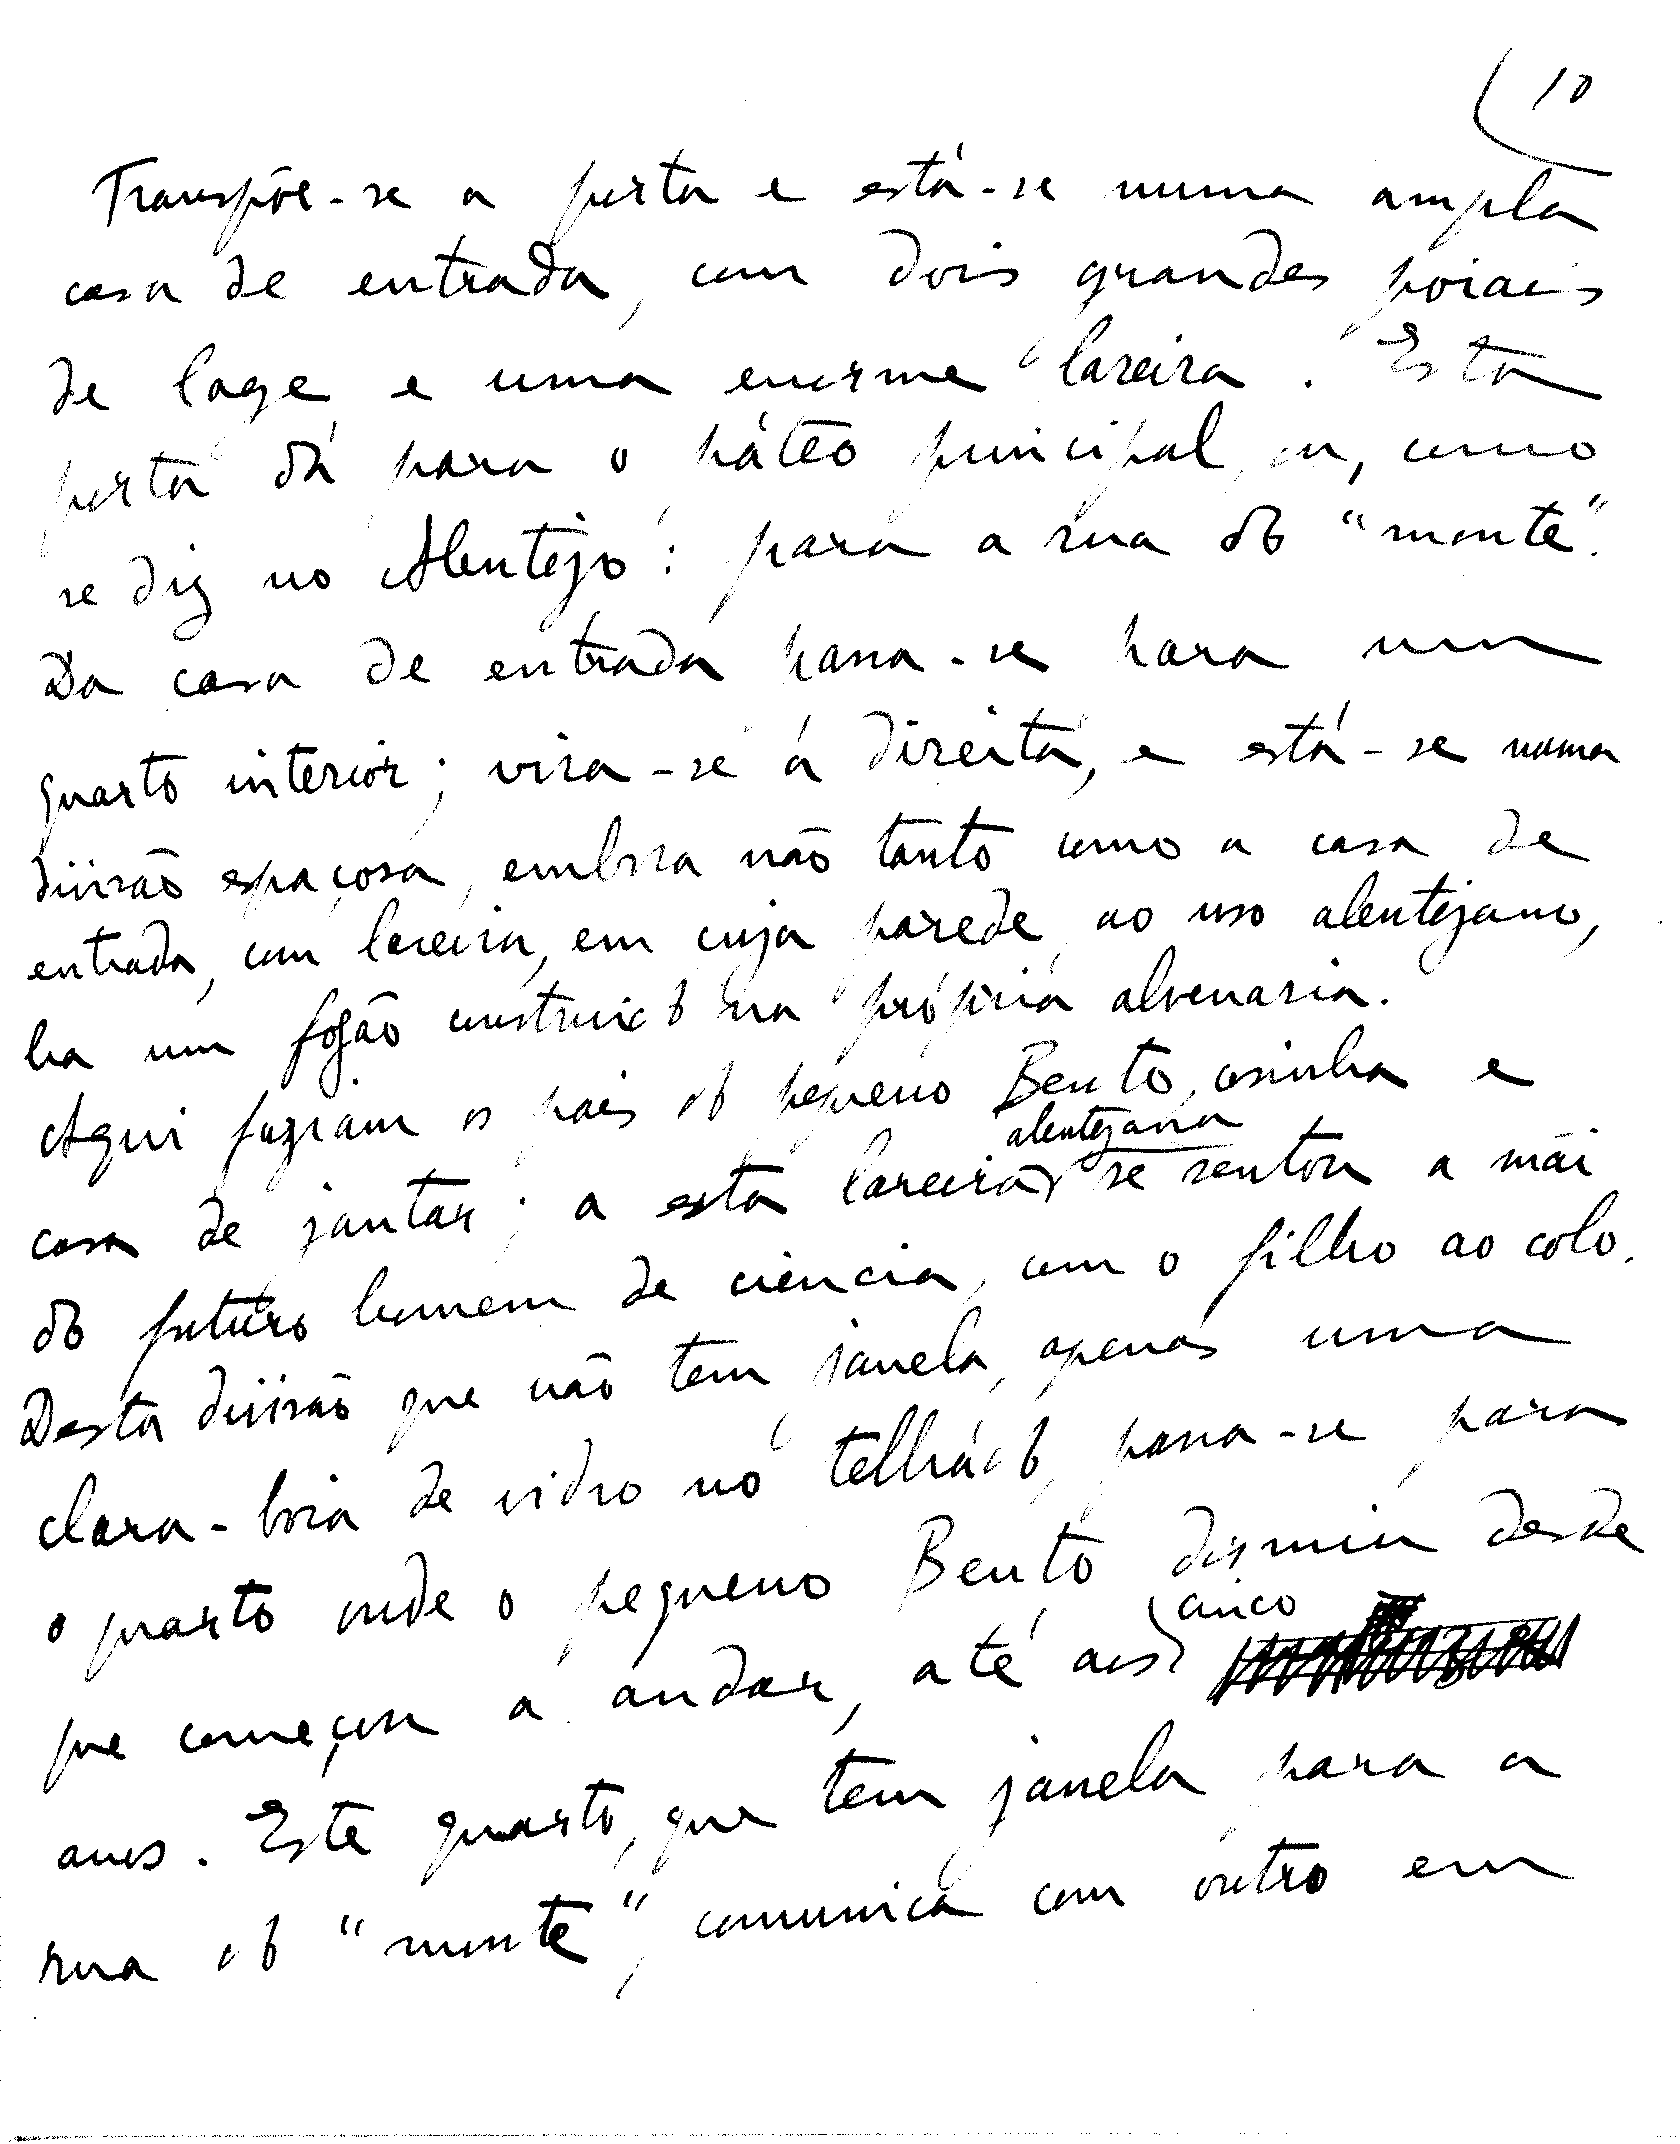 10
Transpõe-se a porta e está-se numa ampla
casa de entrada, com dois grandes poiais
de lage e uma enorme lareira. Esta
porta dá para o páteo principal, ou, como
se diz no Alentejo: para a rua do "monte".
Da casa de entrada passa-se para um
quarto interior; vira-se á direita, e está-se numa
divisão espaçosa, embora não tanto como a casa de
entrada, com lareira, em cuja parede, ao uso alentejano,
ha um fogão construido na própria alvenaria.
Aqui faziam os pais do pequeno Bento, cosinha e
alentejana
casa de jantar; a esta lareira se sentou a mãi
do futuro homem de ciencia, com o filho ao colo.
Desta divisão que não tem janela, apenas uma
clara-boia de vidro no telhádo, passa-se para
o quarto onde o pequeno Bento dormiu desde
cinco
que começou a andar, até aos
anos. Este quarto, que tem janela para a
rua do "monte", comunica com outro em